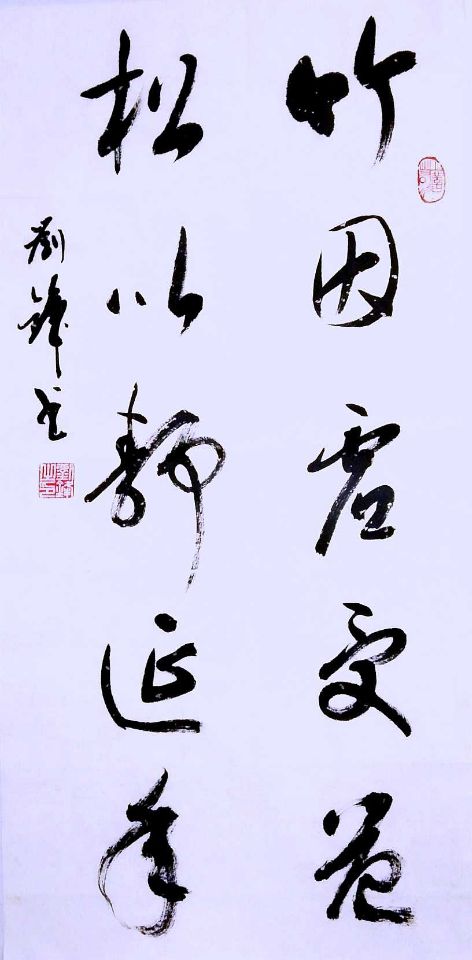 竹因虚受益
松以静延年
劉鋒书